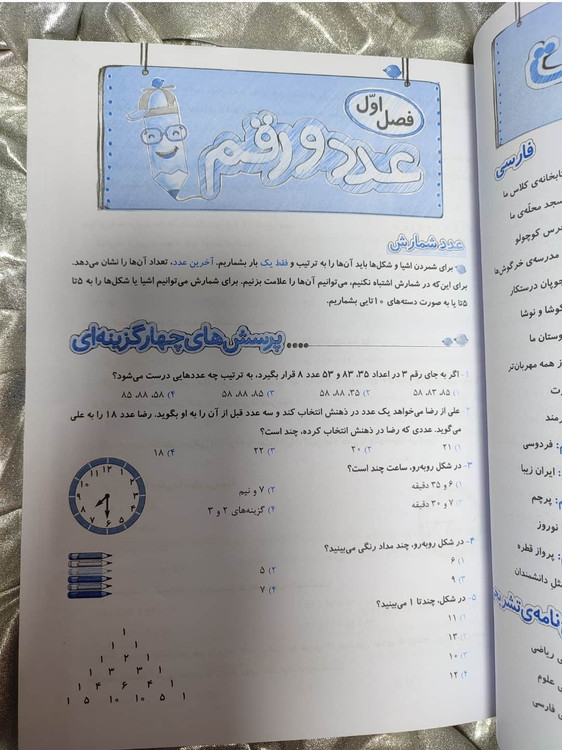 فصل اوّل
عدد و رقم
عدد شمارش
برای شمردن اشیا و شکل‌ها باید آن‌ها را به ترتیب و فقط یک بار بشماریم. آخرین عدد، تعداد آن‌ها را نشان می‌دهد.
برای این‌که در شمارش اشتباه نکنیم، می‌توانیم آن‌ها را علامت بزنیم. برای شمارش می‌توانیم اشیا یا شکل‌ها را ۵ تا
۵ تا یا به صورت دسته‌های ۱۰ تایی بشماریم.
پرسش‌های چهارگزینه‌ای
۱- اگر به جای رقم ۳ در اعداد ۳۵، ۸۳ و ۵۳ عدد ۸ قرار بگیرد، به ترتیب چه عددهایی درست می‌شود؟
۱) ۸۵، ۸۳، ۵۸ ۲) ۸۵، ۸۸، ۳۵ ۳) ۸۵، ۸۸، ۵۸ ۴) ۵۸، ۸۸، ۸۵
۲- علی از رضا می‌خواهد یک عدد در ذهنش انتخاب کند و سه عدد قبل از آن را به او بگوید. رضا عدد ۱۸ را به علی
می‌گوید. عددی که رضا در ذهنش انتخاب کرده، چند است؟
۱) ۲۱ ۲) ۲۰ ۳) ۲۲ ۴) ۱۸
۳- در شکل روبه‌رو، ساعت چند است؟
۱) ۶ و ۳۵ دقیقه ۲) ۷ و نیم
۳) ۷ و ۳۰ دقیقه ۴) گزینه‌های ۲ و ۳
۱۲ ۱ ۲ ۳ ۴ ۵ ۶ ۷ ۸ ۹ ۱۰ ۱۱
۴- در شکل روبه‌رو، چند مداد رنگی می‌بینید؟
۱) ۶ ۲) ۵
۳) ۹ ۴) ۷
۵- در شکل، چندتا ۱ می‌بینید؟
۱) ۱۱
۲) ۱۳
۳) ۱۰
۴) ۱۲
۱
۱ ۱
۱ ۲ ۱
۱ ۳ ۳ ۱
۱ ۴ ۶ ۴ ۱
۱ ۵ ۱۰ ۱۰ ۵ ۱
فارسی
کلاس ما
مسجد محلّه‌ی ما
خرس کوچولو
مدرسه‌ی خرگوش‌ها
چوپان درستکار
کوشا و نوشا
دوستان ما
از همه مهربان‌تر
فردوسی
ایران زیبا
پرچم
نوروز
پرواز قطره
مثل دانشمندان
ریاضی
علوم
فارسی